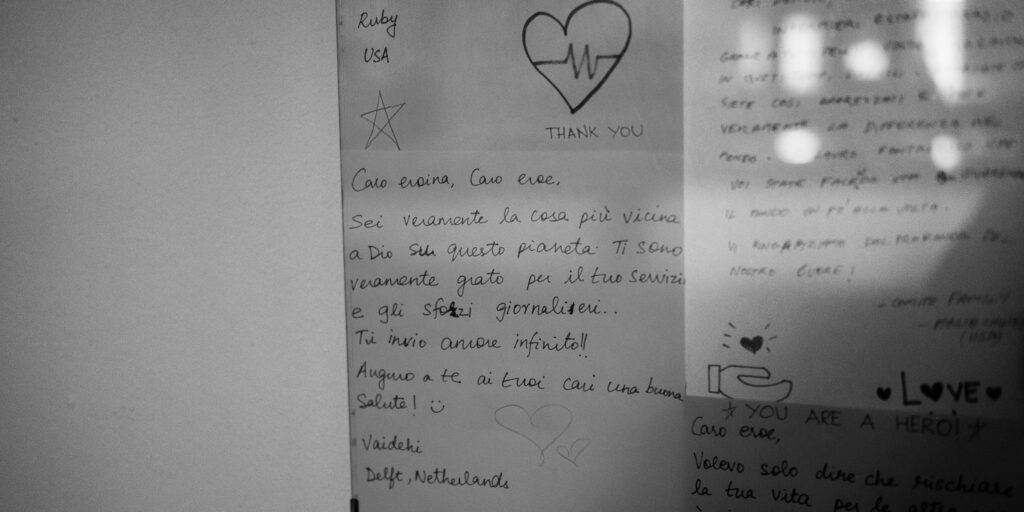 Ruby
USA
THANK YOU
Caro eroina, Caro eroe,
Sei veramente la cosa più vicina
a Dio su questo pianeta. Ti sono
veramente grato per il tuo servizi
e gli sforzi giornalieri..
Ti invio amore infinito!!
Auguro a te ai tuoi cari una buona
Salute!
Vaidehi
Delft, Netherlands
SIETE COSÌ APPREZZATI E
VERAMENTE LA DIFFERENZA NEL
MONDO.
VOI STATE
IL MONDO UN PO' ALLA VOLTA.
VI RINGRAZIAMO DAL PROFONDO DEL
NOSTRO CUORE!
FAMILY
(USA)
LOVE
YOU ARE A HERO!
Caro eroe,
Volevo solo dire che rischiare
la tua vita per le altre